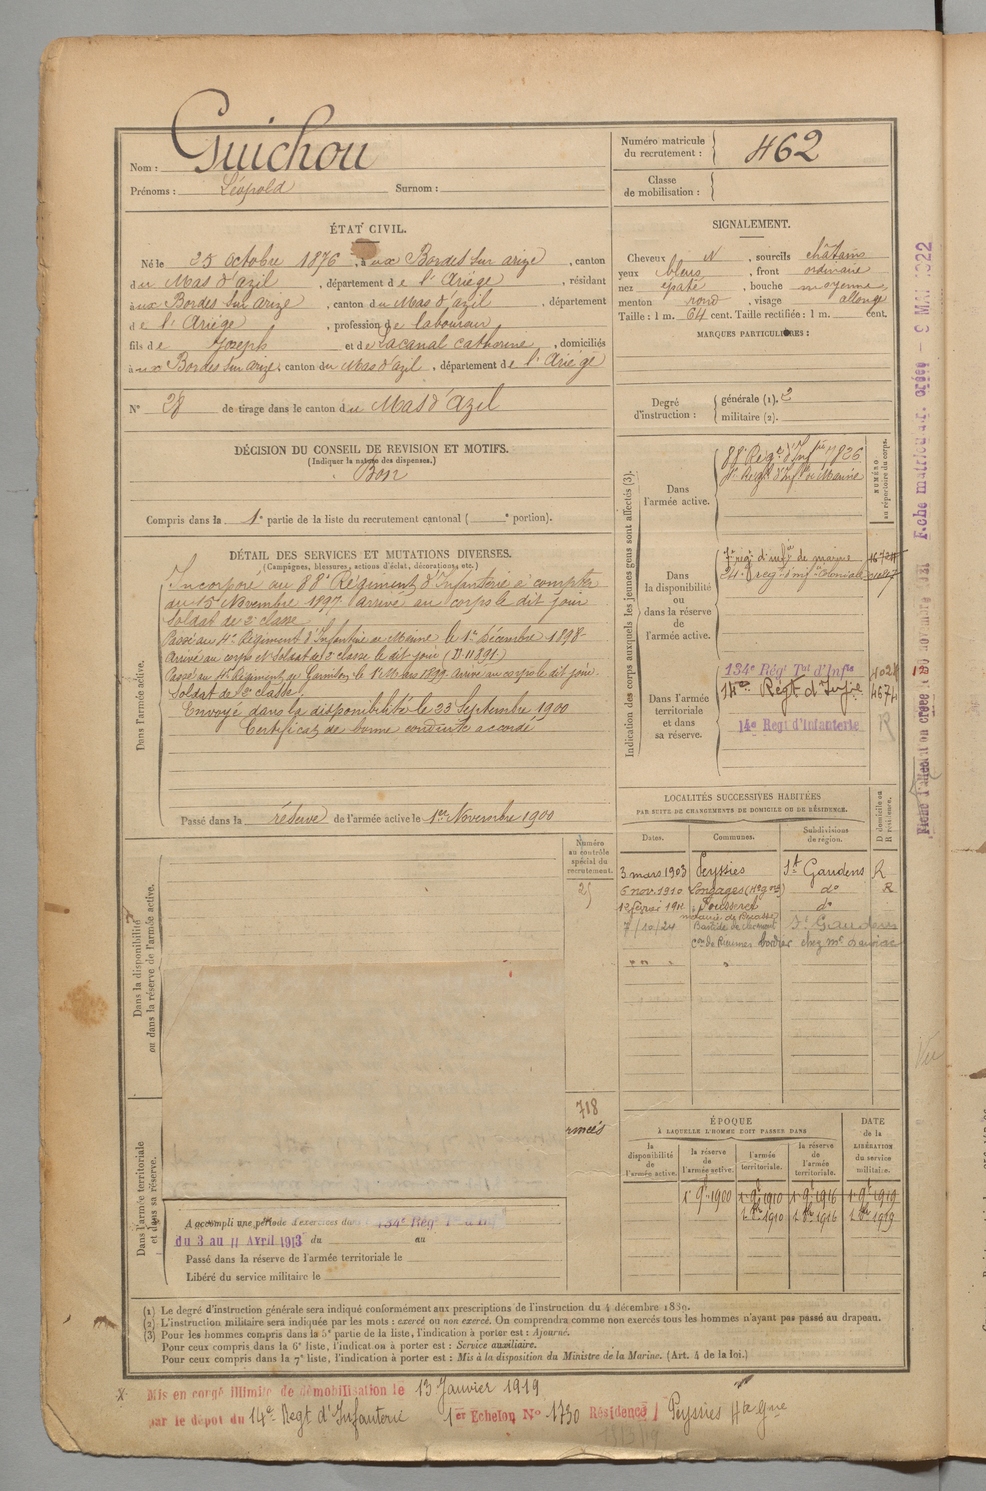 Nom : Guichou
Prénoms : Léopold Surnom :
Numéro matricule du recrutement : 462
Classe de mobilisation :
ÉTAT CIVIL.
Né le 25 octobre 1876, à aux Bordes sur arize, canton
du Mas d'azil, département de l'Ariège, résidant
à aux Bordes sur arize, canton du Mas d'azil, département
de l'Ariège, profession de laboureur
fils de Joseph et de Lacanal Catherine, domiciliés
à aux Bordes sur arize, canton du Mas d'azil, département de l'Ariège
N° 28 de tirage dans le canton du Mas d'Azil
SIGNALEMENT.
Cheveux N, sourcils châtains
yeux bleus, front ordinaire
nez épaté, bouche moyenne
menton rond, visage allongé
Taille : 1 m. 64 cent. Taille rectifiée : 1 m. cent.
MARQUES PARTICULIÈRES :
Degré d'instruction : générale (1). 2
militaire (2).
DÉCISION DU CONSEIL DE REVISION ET MOTIFS.
(Indiquer la nature des dispenses.)
Bon
Compris dans la 1e partie de la liste du recrutement cantonal ( e portion).
DÉTAIL DES SERVICES ET MUTATIONS DIVERSES.
(Campagnes, blessures, actions d'éclat, décorations, etc.)
Dans l'armée active.
Incorporé au 88e Régiment d'Infanterie à compter
du 15 Novembre 1897 arrivé au corps le dit jour
soldat de 2e classe
Passé au 4e Régiment d'Infanterie de Marine le 1er Décembre 1898
Arrivé au corps et Soldat de 2e classe le dit jour (D. 11891.)
Passé au 4e Régiment de Garnison le 1er Mars 1899 Arrivé au corps le dit jour.
Soldat de 2e classe.
Envoyé dans la disponibilité le 23 Septembre 1900
Certificat de bonne conduite accordé
Passé dans la réserve de l'armée active le 1er Novembre 1900
Indication des corps auxquels les jeunes gens sont affectés (3).
NUMÉRO au répertoire du corps.
Dans l'armée active.
88e Régt d'Infie 7826
4e Régt d'Infie de Marine
Dans la disponibilité ou dans la réserve de l'armée active.
7e régt d'infie de marine 16724
24e régt d'infie coloniale
Dans l'armée territoriale et dans sa réserve.
134e Régt Tal d'Infie
14e Régt d'Infie
14e Regt d'Infanterie R
LOCALITÉS SUCCESSIVES HABITÉES
PAR SUITE DE CHANGEMENTS DE DOMICILE OU DE RÉSIDENCE.
Dates. Communes. Subdivisions de région. D domicile ou R résidence.
3 mars 1903 Peyssies St Gaudens R
6 nov. 1910 Longages (Hte Gne) do R
Fousseret do
7/10/24 St Gaudens
Numéro au contrôle spécial du recrutement.
Dans la disponibilité ou dans la réserve de l'armée active.
718
Dans l'armée territoriale et dans sa réserve.
A accompli une période d'exercices dans 134e Régt
du 3 au 11 Avril 1913 du au
Passé dans la réserve de l'armée territoriale le
Libéré du service militaire le
ÉPOQUE
À LAQUELLE L'HOMME DOIT PASSER DANS
DATE de la LIBÉRATION du service militaire.
la disponibilité de l'armée active. la réserve de l'armée active. l'armée territoriale. la réserve de l'armée territoriale.
1er 9bre 1900 1er 9bre 1910 1er 9bre 1916 1er 9bre 1919
1er 8bre 1910 1er 8bre 1916 1er 8bre 1919
(1) Le degré d'instruction générale sera indiqué conformément aux prescriptions de l'instruction du 4 décembre 1889.
(2) L'instruction militaire sera indiquée par les mots : exercé ou non exercé. On comprendra comme non exercés tous les hommes n'ayant pas passé au drapeau.
(3) Pour les hommes compris dans la 5e partie de la liste, l'indication à porter est : Ajourné.
Pour ceux compris dans la 6e liste, l'indication à porter est : Service auxiliaire.
Pour ceux compris dans la 7e liste, l'indication à porter est : Mis à la disposition du Ministre de la Marine. (Art. 4 de la loi.)
Mis en congé illimité de démobilisation le 13 Janvier 1919
par le dépot du 14e Regt d'Infanterie 1er Echelon N° 1730 Résidence Peyssies Hte Gne